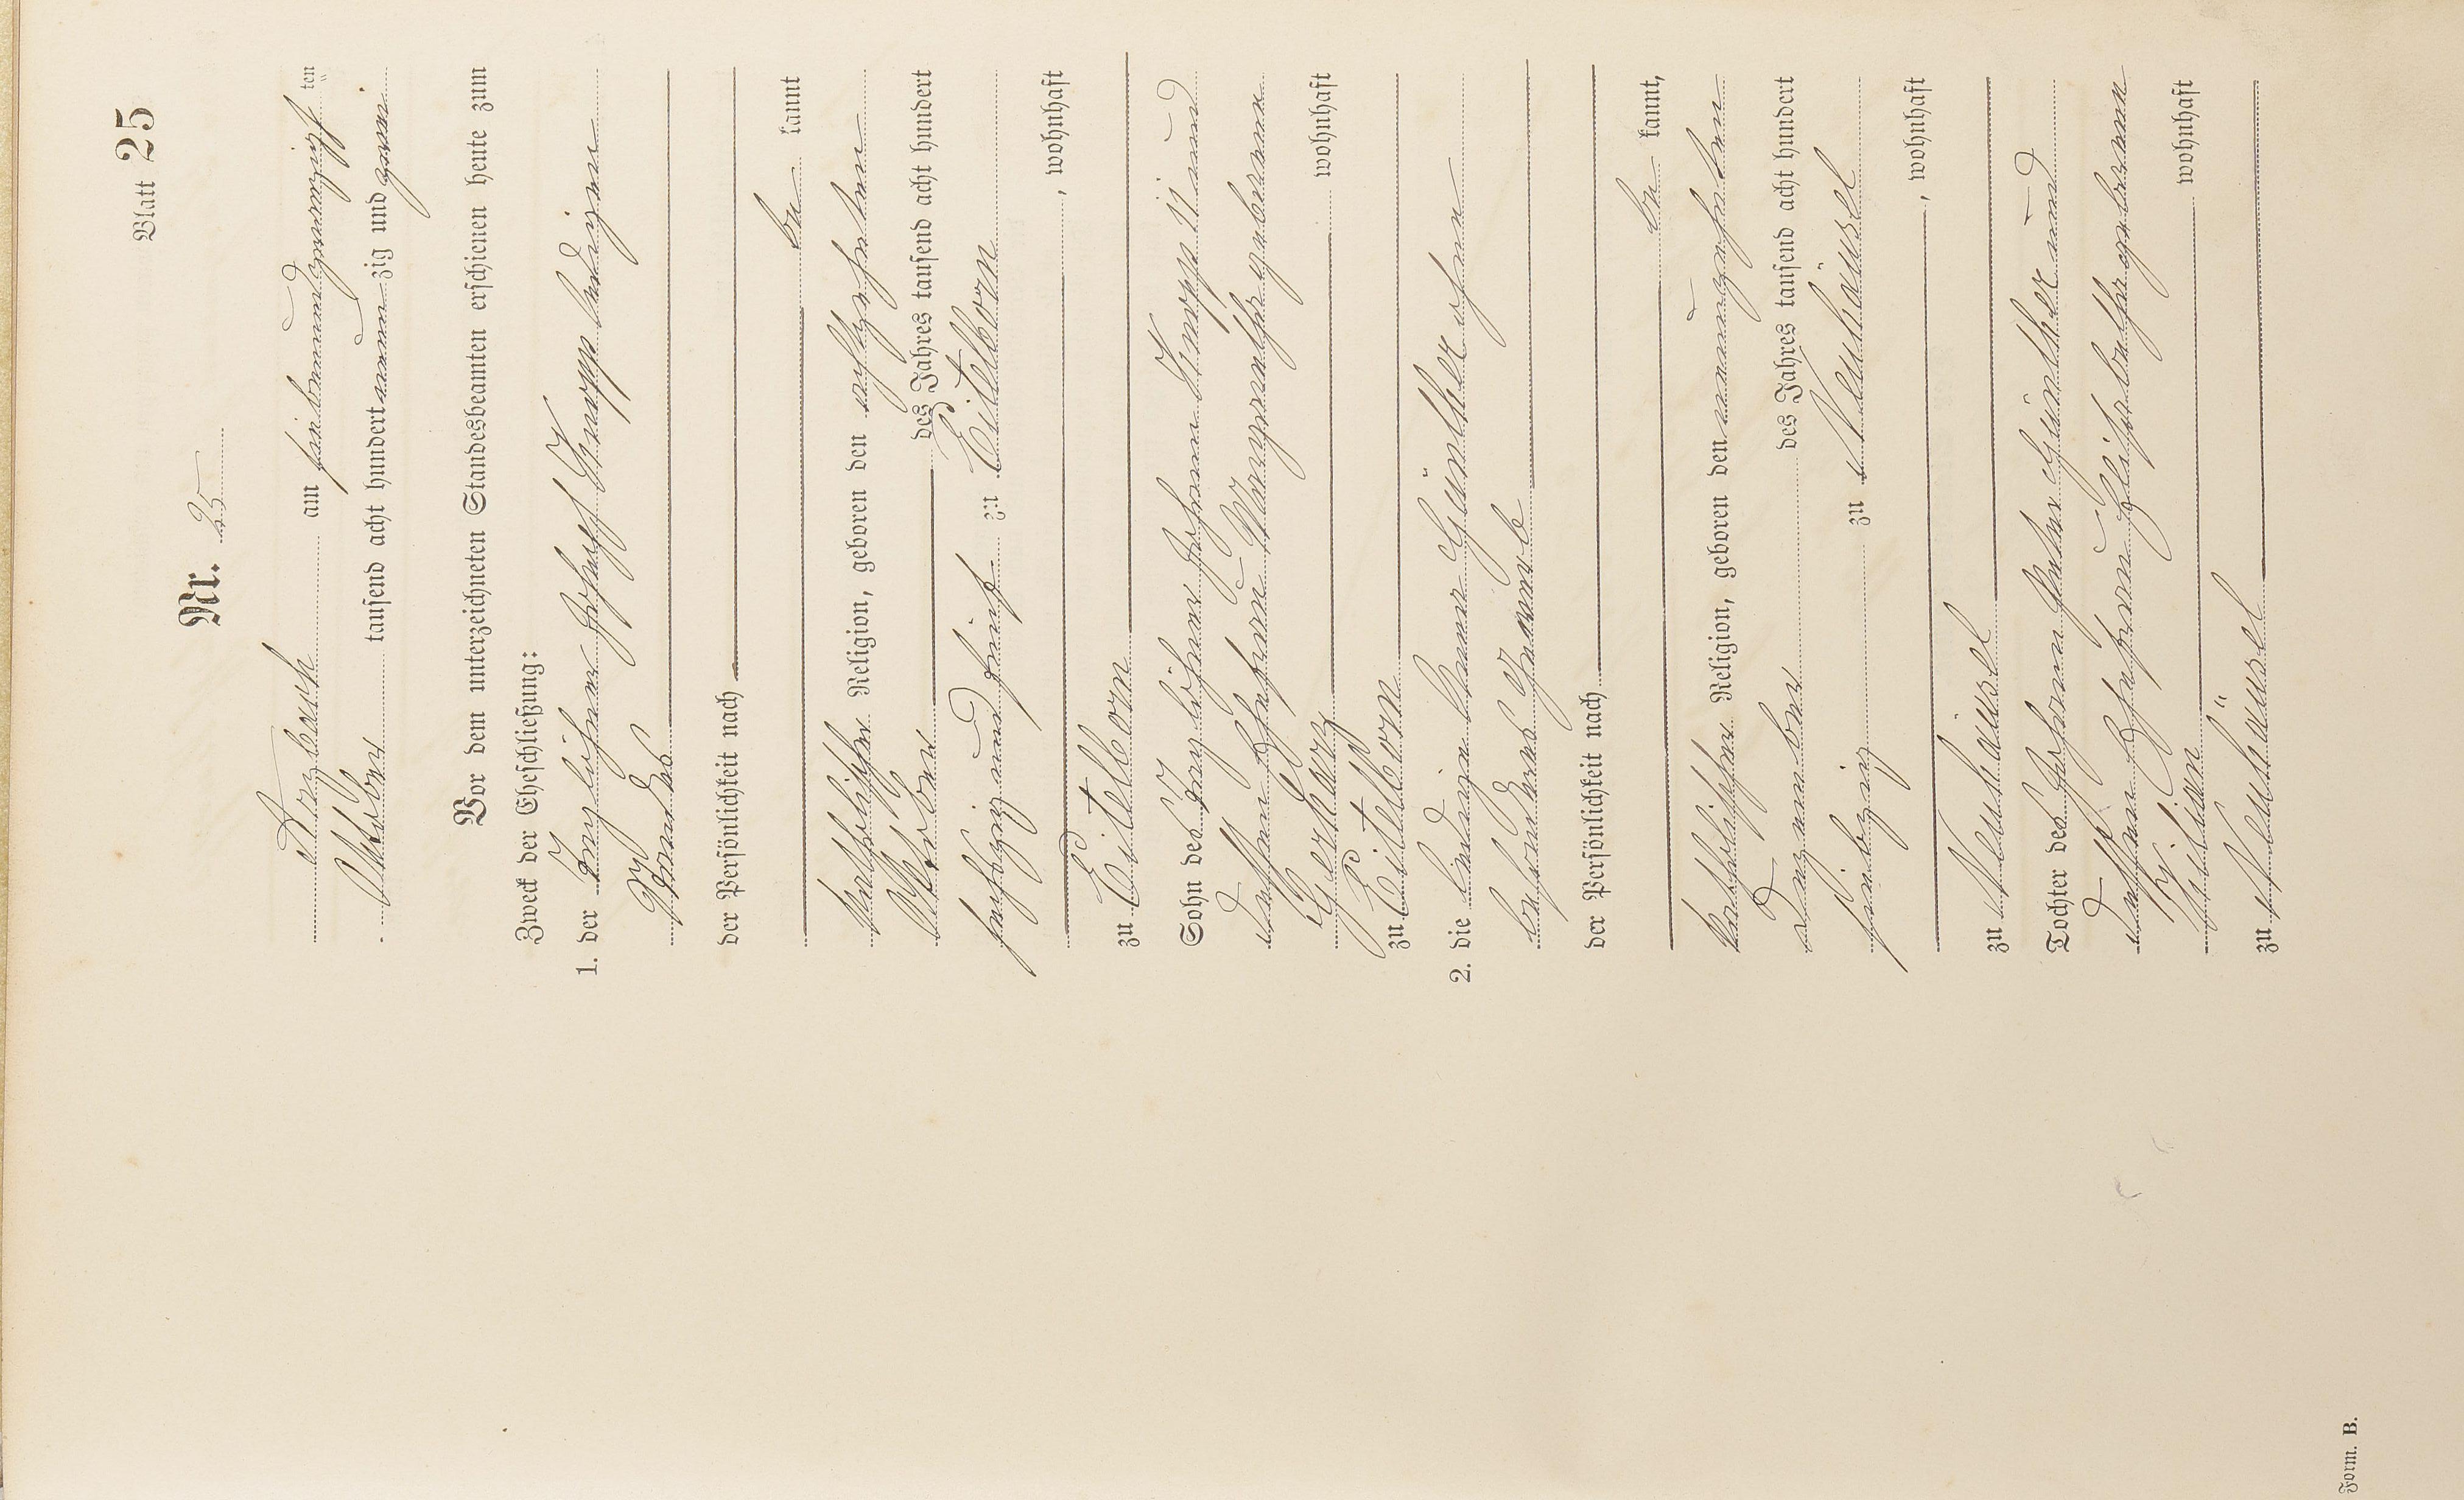 Blatt 25
Nr. 25
Arzbach am sieben und zwanzigsten
Oktober tausend acht hundert neun zig und zwei
Vor dem unterzeichneten Standesbeamten erschienen heute zum
Zweck der Eheschließung:
1. der Tagelöhner Joseph Knopp ledigen
Standes
der Persönlichkeit nach
be kannt
katholischer Religion, geboren den achtzehnten
Oktober des Jahres tausend acht hundert
sechzig und fünf zu Eitelborn
, wohnhaft
zu Eitelborn
Sohn des Tagelöhners Johann Knopp II und
dessen Ehefrau Margaretha geborene
Gerharz wohnhaft
zu Eitelborn
2. die ledige Anna Günther ohne
besonderes Gewerb
der Persönlichkeit nach
be kannt,
katholischer Religion, geboren den neunzehnten
Dezember des Jahres tausend acht hundert
siebzig zu Neuhäusel
, wohnhaft
zu Neuhäusel
Tochter des Peter Günther und
dessen Ehefrau Elisabetha geborene
Kilian wohnhaft
zu Neuhäusel
Form. B.